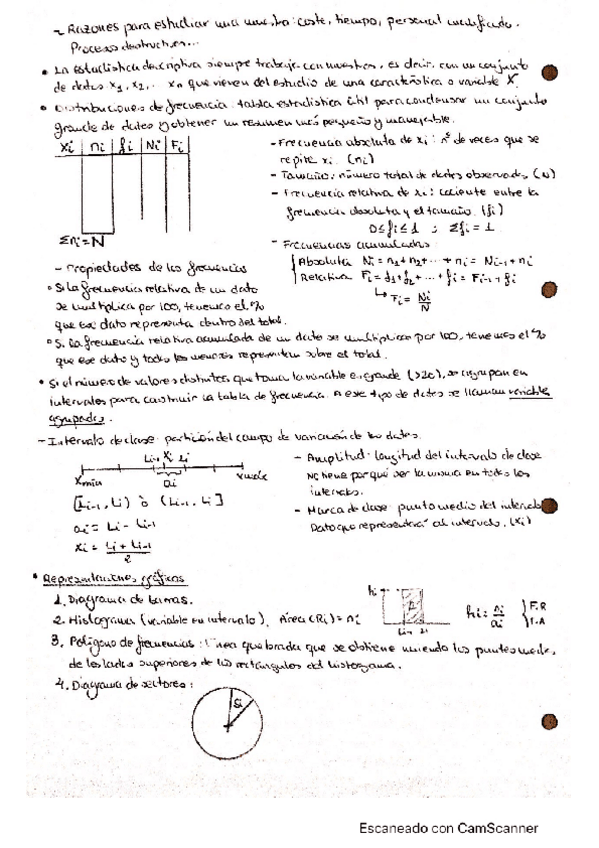 - Razones para estudiar una muestra: coste, tiempo, personal cualificado.
Proceso destructivo...
• La estadística descriptiva siempre trabaja con muestras, es decir, con un conjunto
de datos x1, x2, ... xn que vienen del estudio de una característica o variable X.
• Distribuciones de frecuencia: tabla estadística útil para condensar un conjunto
grande de datos y obtener un resumen más pequeño y manejable.
xi | ni | fi | Ni | Fi
Σni = N
- Frecuencia absoluta de xi: nº de veces que se
repite xi. (ni)
- Tamaño: número total de datos observados (N)
- Frecuencia relativa de xi: cociente entre la
frecuencia absoluta y el tamaño. (fi)
0 ≤ fi ≤ 1 ; Σfi = 1
- Frecuencias acumuladas:
Absoluta Ni = n1 + n2 + ... + ni = Ni-1 + ni
Relativa Fi = f1 + f2 + ... + fi = Fi-1 + fi
↳ Fi = Ni/N
- Propiedades de las frecuencias
• Si la frecuencia relativa de un dato
se multiplica por 100, tenemos el %
que ese dato representa dentro del total.
• Si la frecuencia relativa acumulada de un dato se multiplica por 100, tenemos el %
que ese dato y todos los menores representan sobre el total.
• Si el número de valores distintos que toma la variable es grande (>20), se agrupan en
intervalos para construir la tabla de frecuencia. A este tipo de datos se llaman variable
agrupados.
- Intervalo de clase: partición del campo de variación de los datos.
Li-1 xi Li
xmin xmáx
ai
[Li-1, Li) ò (Li-1, Li]
ai = Li - Li-1
xi = (Li + Li-1)/2
- Amplitud: longitud del intervalo de clase
No tiene por qué ser la misma en todos los
intervalos.
- Marca de clase: punto medio del intervalo
Dato que representará al intervalo. (xi)
• Representaciones gráficas
1. Diagrama de barras.
2. Histograma (variable en intervalo). Área (Ri) = ni
hi
Li-1 Li
hi = ni/ai
3. Polígono de frecuencias: línea quebrada que se obtiene uniendo los puntos medios
de los lados superiores de los rectángulos del histograma.
4. Diagrama de sectores:
Escaneado con CamScanner